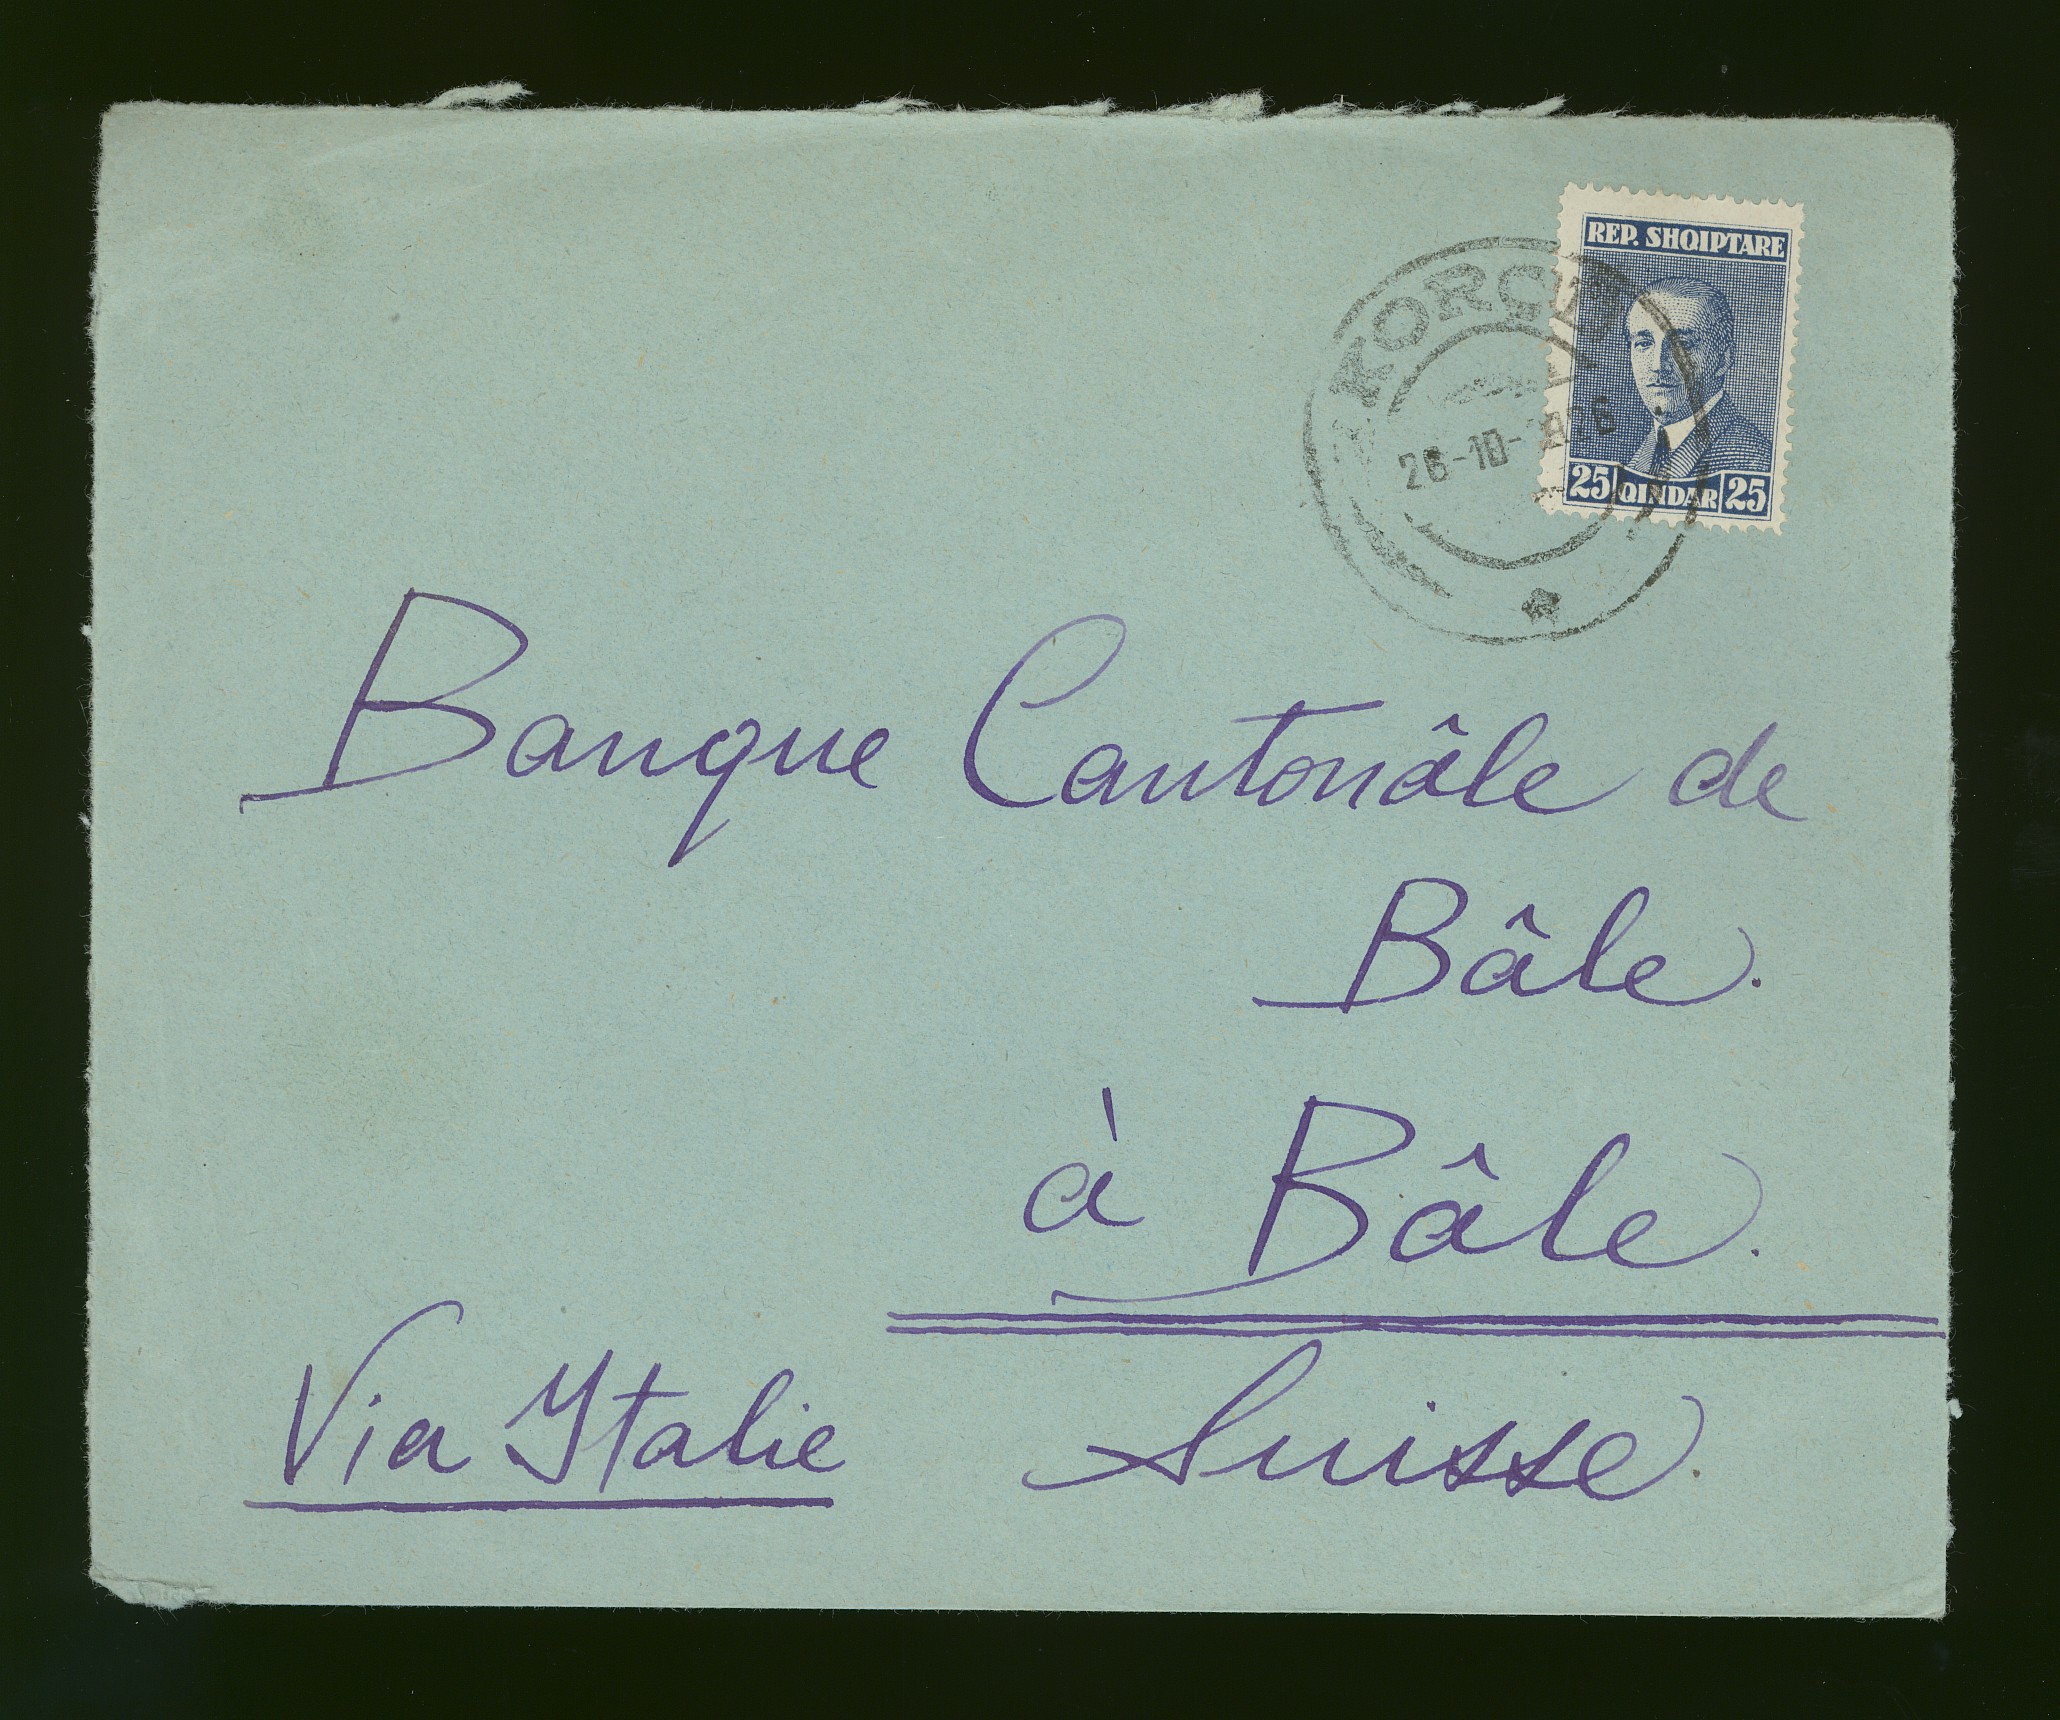 REP. SHQIPTARE
25 QINDAR 25
26-10-1926
Banque Cantonâle de
Bâle.
à Bâle.
Via Italie Suisse.